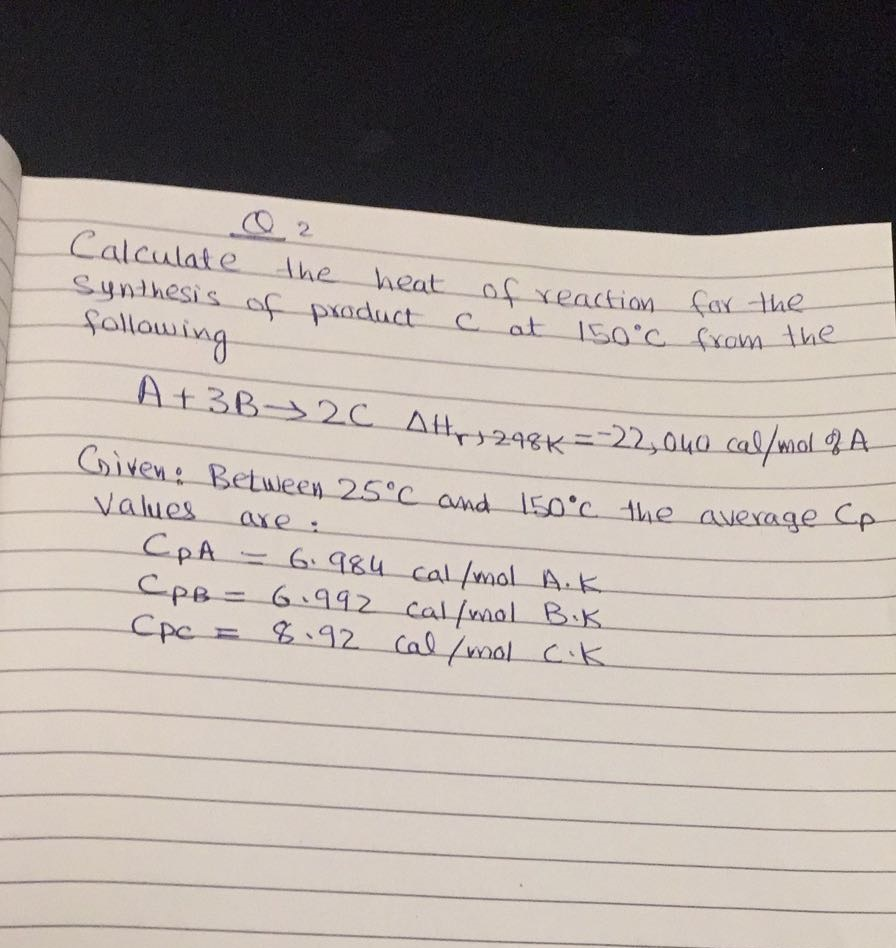 Q 2
Calculate the heat of reaction for the
synthesis of product C at 150°C from the
following
A + 3B → 2C ΔHr,298K = -22,040 cal/mol of A
Given: Between 25°C and 150°C the average Cp
Values are:
CpA = 6.984 cal/mol A.K
CpB = 6.992 cal/mol B.K
Cpc = 8.92 cal/mol C.K